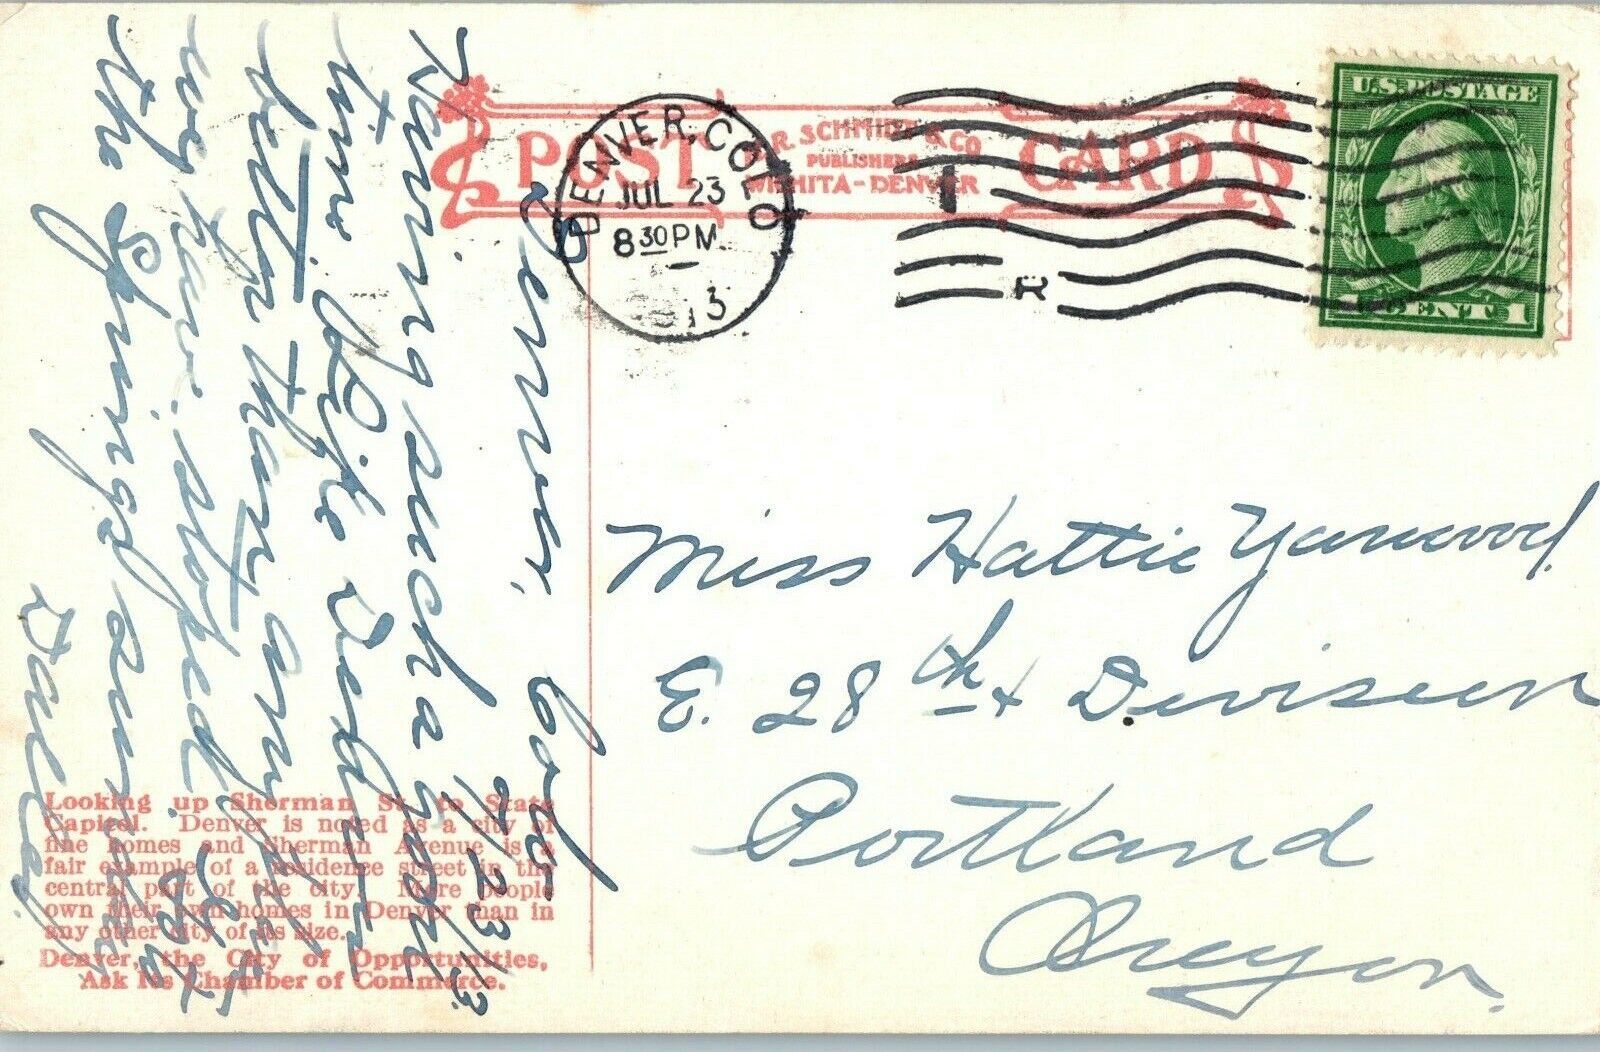 POST CARD
R. SCHMIDT & CO
PUBLISHERS
WICHITA-DENVER
DENVER, COLO
JUL 23
8 30 PM
1913
1
R
U.S. POSTAGE
1 CENT 1
Denver, Colo
7/23/13.
Having such a good
time like Denver
better than any place
we have stoped. Got
the Springs
Miss Hattie Yarwood.
E. 28th + Division
Portland
Oregon.
Looking up Sherman St. to State
Capitol. Denver is noted as a city of
fine homes and Sherman Avenue is a
fair example of a residence street in the
central part of the city. More people
own their own homes in Denver than in
any other city of its size.
Denver, the City of Opportunities,
Ask Its Chamber of Commerce.